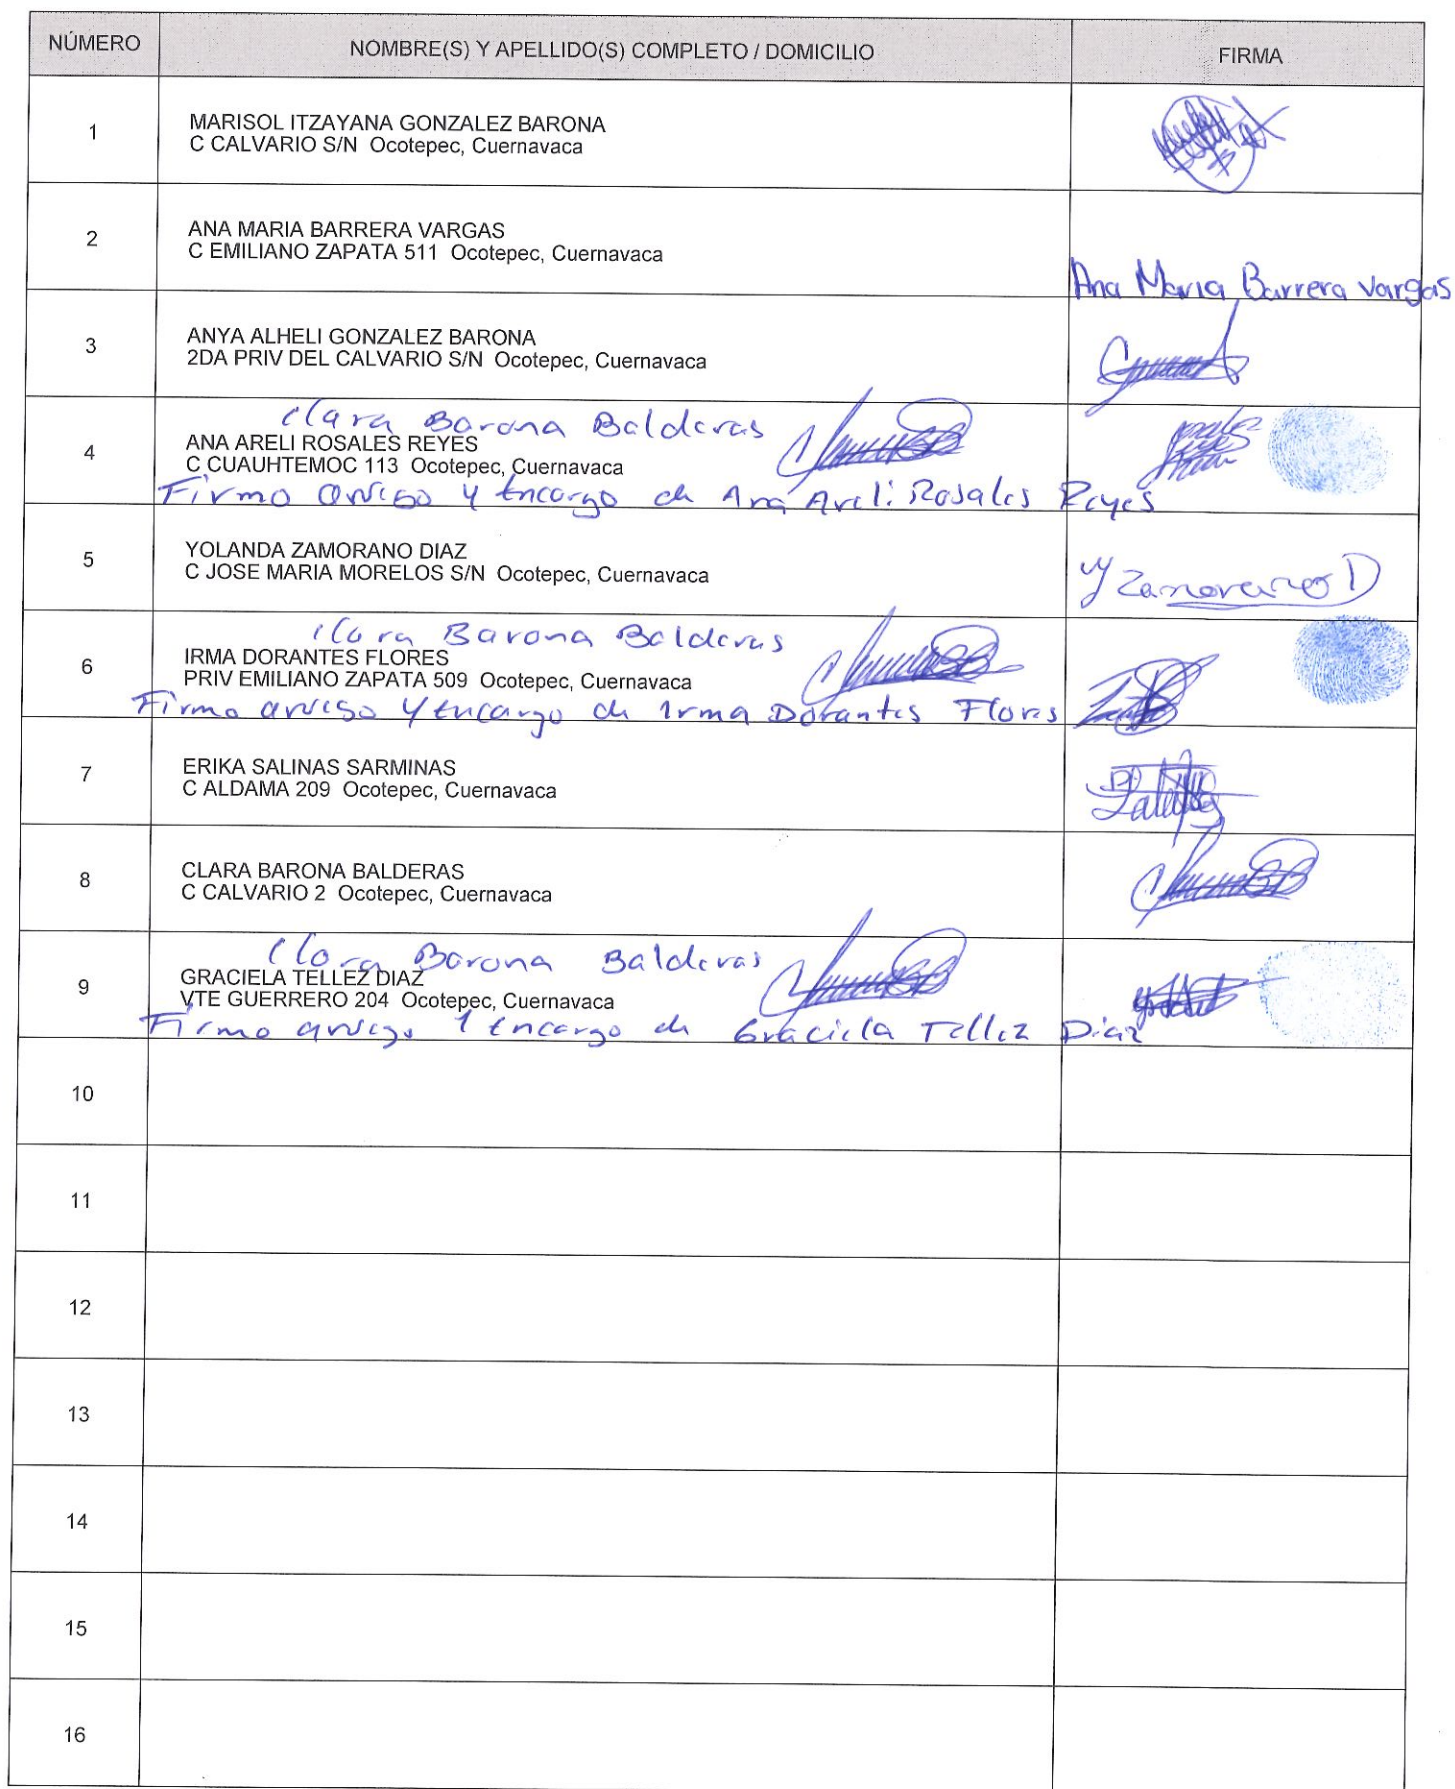 NÚMERO NOMBRE(S) Y APELLIDO(S) COMPLETO / DOMICILIO FIRMA
1 MARISOL ITZAYANA GONZALEZ BARONA
C CALVARIO S/N Ocotepec, Cuernavaca
2 ANA MARIA BARRERA VARGAS
C EMILIANO ZAPATA 511 Ocotepec, Cuernavaca
Ana Maria Barrera Vargas
3 ANYA ALHELI GONZALEZ BARONA
2DA PRIV DEL CALVARIO S/N Ocotepec, Cuernavaca
Clara Barona Balderas
4 ANA ARELI ROSALES REYES
C CUAUHTEMOC 113 Ocotepec, Cuernavaca
Firmo y Encargo de Ana Areli Rosales Reyes
5 YOLANDA ZAMORANO DIAZ
C JOSE MARIA MORELOS S/N Ocotepec, Cuernavaca
Y Zamorano D
Clara Barona Balderas
6 IRMA DORANTES FLORES
PRIV EMILIANO ZAPATA 509 Ocotepec, Cuernavaca
Firmo y encargo de Irma Dorantes Flores
7 ERIKA SALINAS SARMINAS
C ALDAMA 209 Ocotepec, Cuernavaca
8 CLARA BARONA BALDERAS
C CALVARIO 2 Ocotepec, Cuernavaca
Clara Barona Balderas
9 GRACIELA TELLEZ DIAZ
VTE GUERRERO 204 Ocotepec, Cuernavaca
Firmo encargo de Graciela Tellez Diaz
10
11
12
13
14
15
16